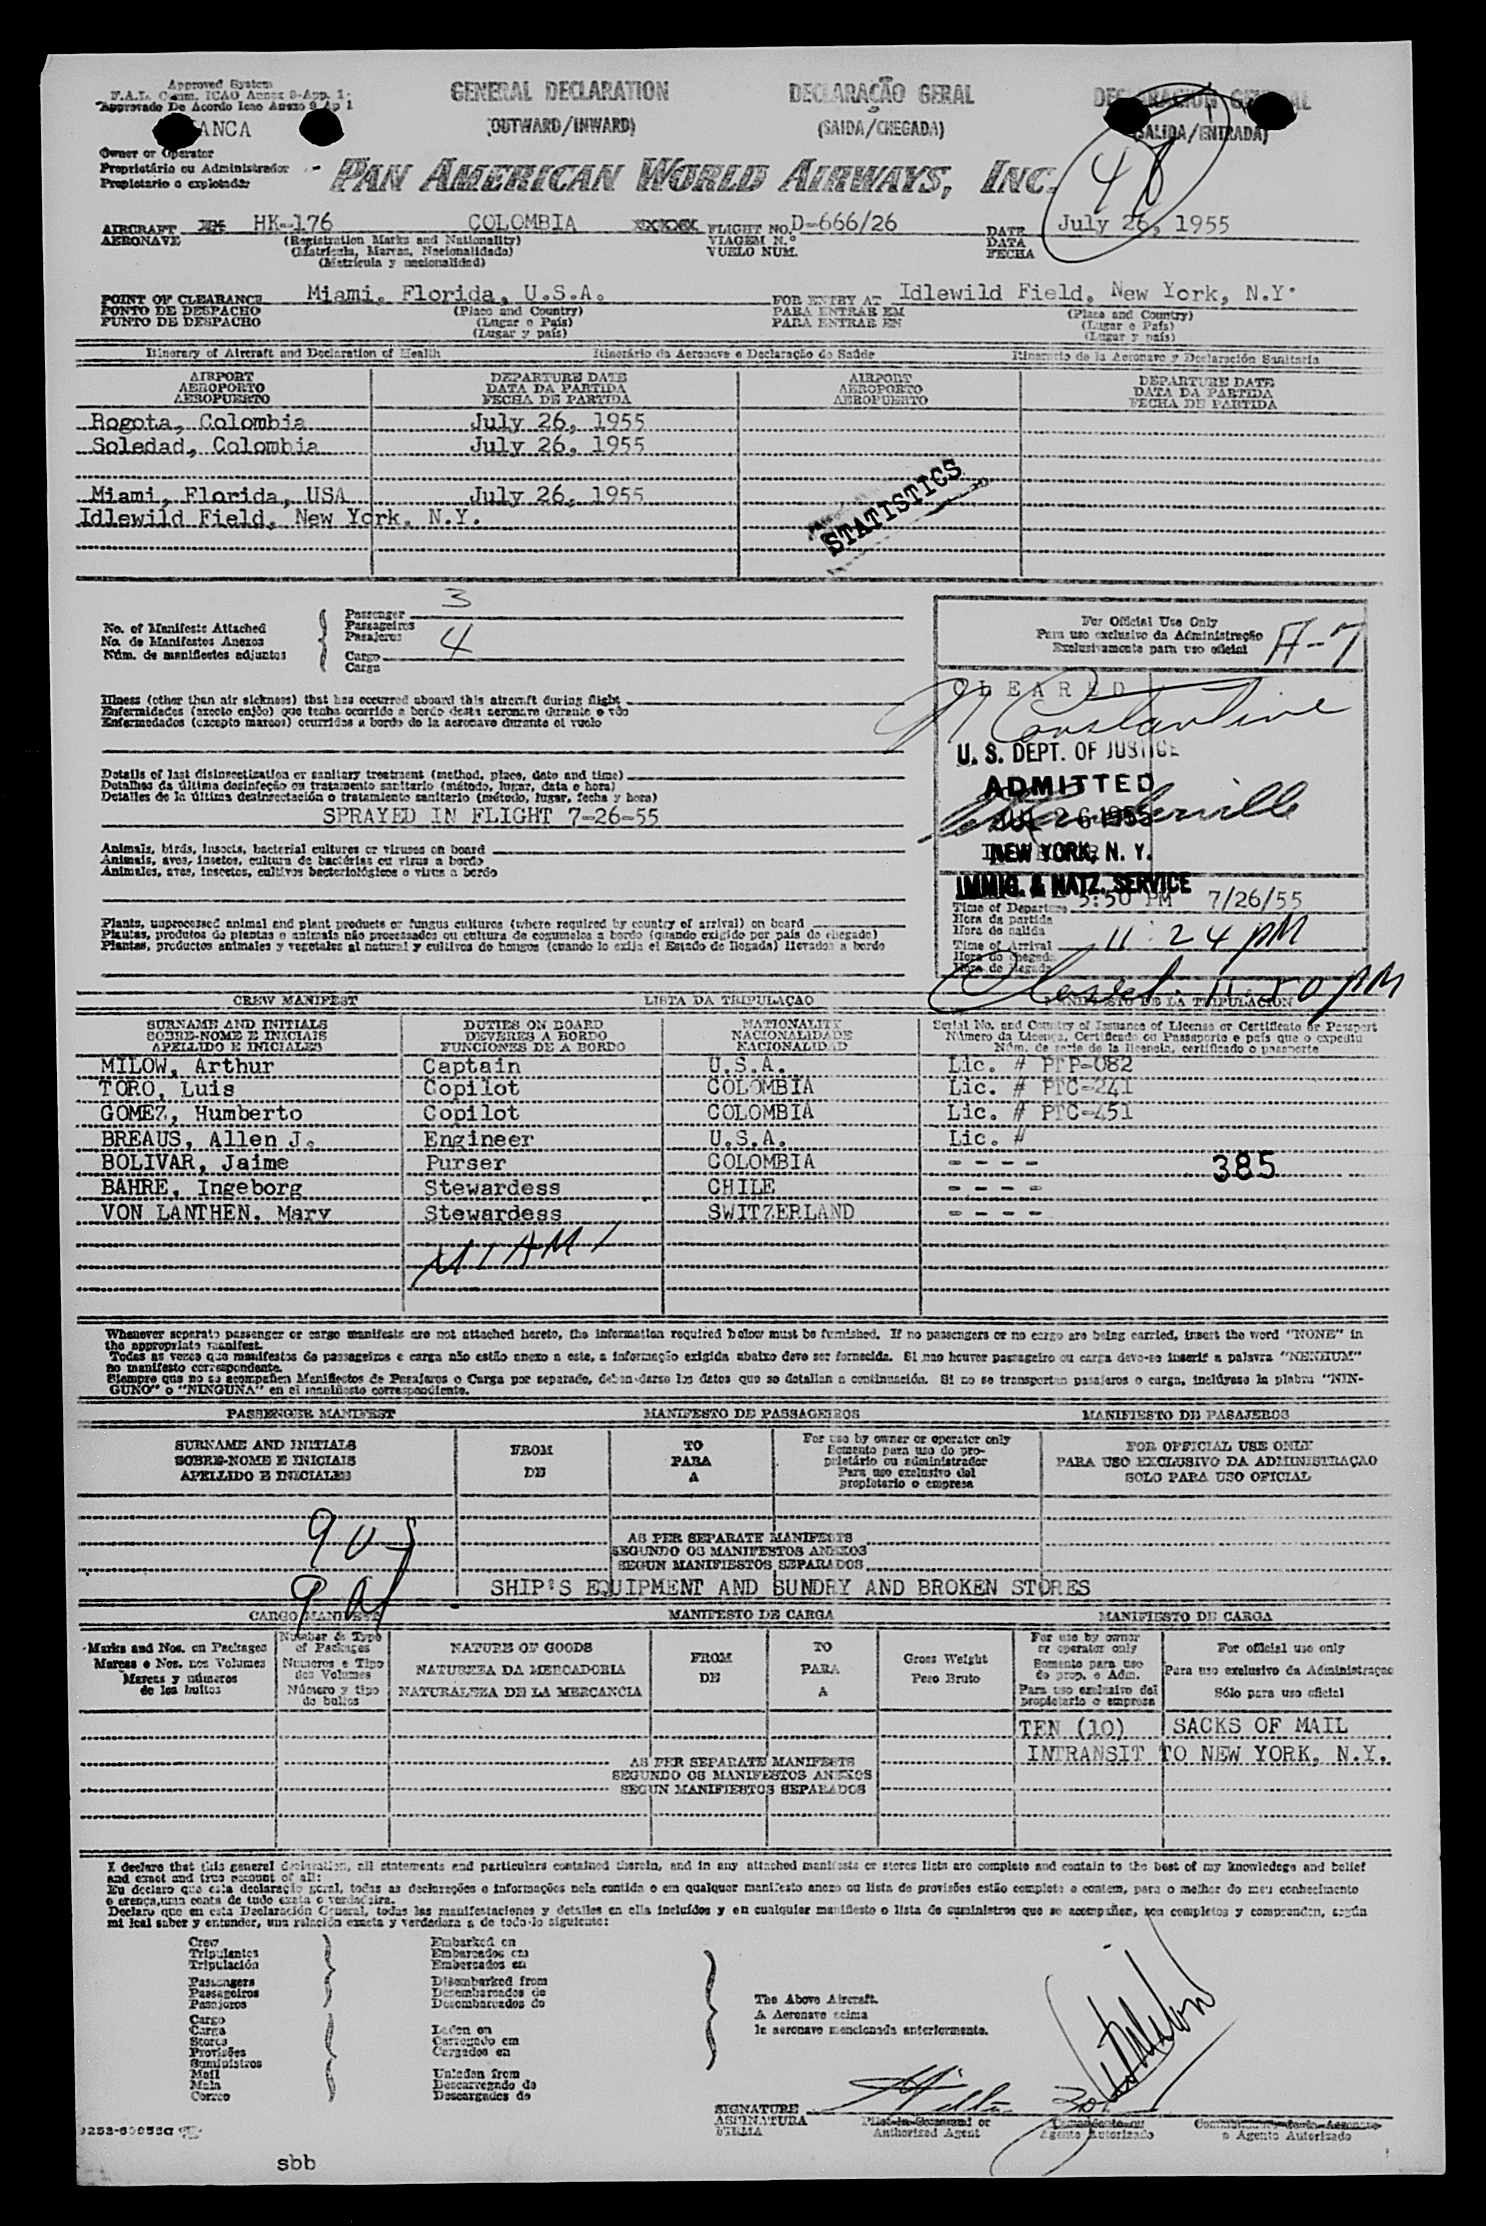 Approved System
F.A.L. Comm. ICAO Annex 9-App. 1-
Approvado De Acordo Icao Anexo 9 Ap 1
ANCA
GENERAL DECLARATION
(OUTWARD/INWARD)
DECLARAÇÃO GERAL
(SAIDA/CHEGADA)
(SALIDA/ENTRADA)
48
Owner or Operator
Proprietário ou Administrador
Propietario o explotador
PAN AMERICAN WORLD AIRWAYS, INC.
AIRCRAFT HK-176 COLOMBIA FLIGHT NO. D-666/26 DATE July 26, 1955
AERONAVE (Registration Marks and Nationality) VIAGEM N.º DATA
(Matrícula, Marcas, Nacionalidade) VUELO NUM. FECHA
(Matrícula y nacionalidad)
POINT OF CLEARANCE Miami, Florida, U.S.A. FOR ENTRY AT Idlewild Field, New York, N.Y.
PONTO DE DESPACHO (Place and Country) PARA ENTRAR EM (Place and Country)
PUNTO DE DESPACHO (Lugar e País) PARA ENTRAR EN (Lugar e País)
(Lugar y país) (Lugar y país)
Itinerary of Aircraft and Declaration of Health Itinerário da Aeronave e Declaração de Saúde Itinerario de la Aeronave y Declaración Sanitaria
AIRPORT DEPARTURE DATE AIRPORT DEPARTURE DATE
AEROPORTO DATA DA PARTIDA AEROPORTO DATA DA PARTIDA
AEROPUERTO FECHA DE PARTIDA AEROPUERTO FECHA DE PARTIDA
Bogota, Colombia July 26, 1955
Soledad, Colombia July 26, 1955
Miami, Florida, USA July 26, 1955
Idlewild Field, New York, N.Y.
STATISTICS
No. of Manifests Attached
No. de Manifestos Anexos
Núm. de manifiestos adjuntos
Passenger 3
Passageiros
Pasajeros
Cargo 4
Carga
For Official Use Only
Para uso exclusivo da Administração
Exclusivamente para uso oficial
A-7
Illness (other than air sickness) that has occurred aboard this aircraft during flight
Enfermidades (exceto enjôo) que tenha ocorrido a bordo desta aeronave durante o vôo
Enfermedades (excepto mareos) ocurridos a bordo de la aeronave durante el vuelo
CLEARED
Constantine
U. S. DEPT. OF JUSTICE
ADMITTED
JUL 26 1955
NEW YORK, N. Y.
IMMIG. & NATZ. SERVICE
Details of last disinsectization or sanitary treatment (method, place, date and time)
Detalhes da última desinfeção ou tratamento sanitario (método, lugar, data e hora)
Detalles de la última desinsectación o tratamiento sanitario (método, lugar, fecha y hora)
SPRAYED IN FLIGHT 7-26-55
Animals, birds, insects, bacterial cultures or viruses on board
Animais, aves, insetos, cultura de bactérias ou virus a bordo
Animales, aves, insectos, cultivos bacteriológicos o virus a bordo
Plants, unprocessed animal and plant products or fungus cultures (where required by country of arrival) on board
Plantas, produtos de plantas e animais não processados ou cultura de cogumelos a bordo (quando exigido por país de chegada)
Plantas, productos animales y vegetales al natural y cultivos de hongos (cuando lo exija el Estado de llegada) llevados a bordo
Time of Departure 5:50 PM 7/26/55
Hora da partida
Hora de salida
Time of Arrival 11:24 PM
Hora de chegada
Hora de llegada
Cleared 11:50 PM
CREW MANIFEST LISTA DA TRIPULAÇAO MANIFIESTO DE LA TRIPULACION
SURNAME AND INITIALS DUTIES ON BOARD NATIONALITY Serial No. and Country of Issuance of License or Certificate or Passport
SOBRE-NOME E INICIAIS DEVERES A BORDO NACIONALIDADE Número da Licença, Certificado ou Passaporte e país que o expediu
APELLIDO E INICIALES FUNCIONES DE A BORDO NACIONALIDAD Núm. de serie de la licencia, certificado o pasaporte
MILOW, Arthur Captain U.S.A. Lic. # PTP-082
TORO, Luis Copilot COLOMBIA Lic. # PTC-241
GOMEZ, Humberto Copilot COLOMBIA Lic. # PTC-451
BREAUS, Allen J. Engineer U.S.A. Lic. #
BOLIVAR, Jaime Purser COLOMBIA - - - - 385
BAHRE, Ingeborg Stewardess CHILE - - - -
VON LANTHEN, Mary Stewardess SWITZERLAND - - - -
MIAMI
Whenever separate passenger or cargo manifests are not attached hereto, the information required below must be furnished. If no passengers or no cargo are being carried, insert the word "NONE" in
the appropriate manifest.
Todas as vezes que manifestos de passageiros e carga não estão anexo a este, a informação exigida abaixo deve ser fornecida. Si nao houver passageiro ou carga deve-se inserir a palavra "NENHUM"
no manifesto correspondente.
Siempre que no se acompañen Manifiestos de Pasajeros o Carga por separado, deben darse los datos que se detallan a continuación. Si no se transportan pasajeros o carga, inclúyase la plabra "NIN-
GUNO" o "NINGUNA" en el manifiesto correspondiente.
PASSENGER MANIFEST MANIFESTO DE PASSAGEIROS MANIFIESTO DE PASAJEROS
SURNAME AND INITIALS FROM TO For use by owner or operator only FOR OFFICIAL USE ONLY
SOBRE-NOME E INICIAIS DE PARA Somente para uso do pro- PARA USO EXCLUSIVO DA ADMINISTRAÇAO
APELLIDO E INICIALES A prietário ou administrador SOLO PARA USO OFICIAL
Para uso exclusivo del
propietario o empresa
AS PER SEPARATE MANIFESTS
SEGUNDO OS MANIFESTOS ANEXOS
SEGUN MANIFIESTOS SEPARADOS
SHIP'S EQUIPMENT AND SUNDRY AND BROKEN STORES
CARGO MANIFEST MANIFESTO DE CARGA MANIFIESTO DE CARGA
Marks and Nos. on Packages Number & Type of Packages NATURE OF GOODS FROM TO Gross Weight For use by owner or operator only For official use only
Marcas e Nos. nos Volumes Numeros e Tipo dos Volumes NATUREZA DA MERCADORIA DE PARA Peso Bruto Somente para uso do prop. e Adm. Para uso exclusivo da Administraçao
Marcas y números de los bultos Número y tipo de bultos NATURALEZA DE LA MERCANCIA A Para uso exclusivo del propietario o empresa Sólo para uso oficial
TEN (10) SACKS OF MAIL
INTRANSIT TO NEW YORK, N.Y.
AS PER SEPARATE MANIFESTS
SEGUNDO OS MANIFESTOS ANEXOS
SEGUN MANIFIESTOS SEPARADOS
I declare that this general declaration, all statements and particulars contained therein, and in any attached manifests or stores lists are complete and contain to the best of my knowledege and belief
and exact and true account of all:
Eu declaro que esta declaração geral, todas as declarações e informações nela contida e em qualquer manifesto anexo ou lista de provisões estão completo e contem, para o melhor do meu conhecimento
e crença, uma conta de tudo exata e verdadeira.
Declaro que en esta Declaración General, todas las manifestaciones y detalles en ella incluídos y en cualquier manifiesto o lista de suministros que se acompañen, son completos y comprenden, según
mi leal saber y entender, una relación exacta y verdadera a de todo lo siguiente:
Crew
Tripulantes
Tripulación
Passengers
Passageiros
Pasajeros
Cargo
Carga
Stores
Provisões
Suministros
Mail
Mala
Correo
Embarked on
Embarcados em
Embarcados en
Disembarked from
Desembarcados de
Desembarcados de
Laden on
Carregado em
Cargados en
Unladen from
Descarregado de
Descargados de
The Above Aircraft.
A Aeronave acima
la aeronave mencionada anteriormente.
SIGNATURE
ASSINATURA
FIRMA
Pilot-in-Command or
Authorized Agent
Comandante ou
Agente Autorizado
o Agente Autorizado
sbb